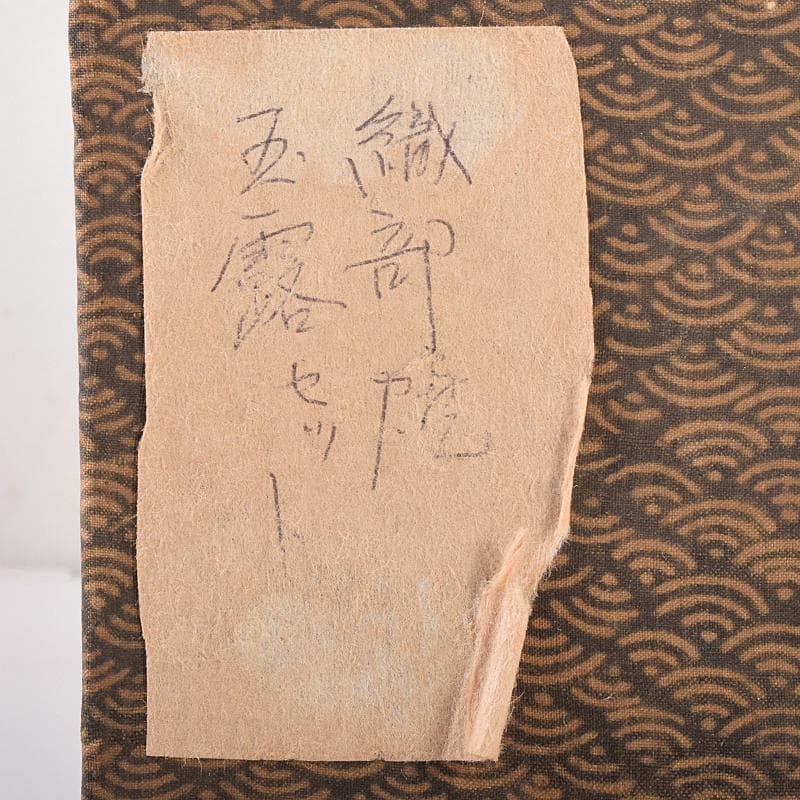 織部焼
玉露セット